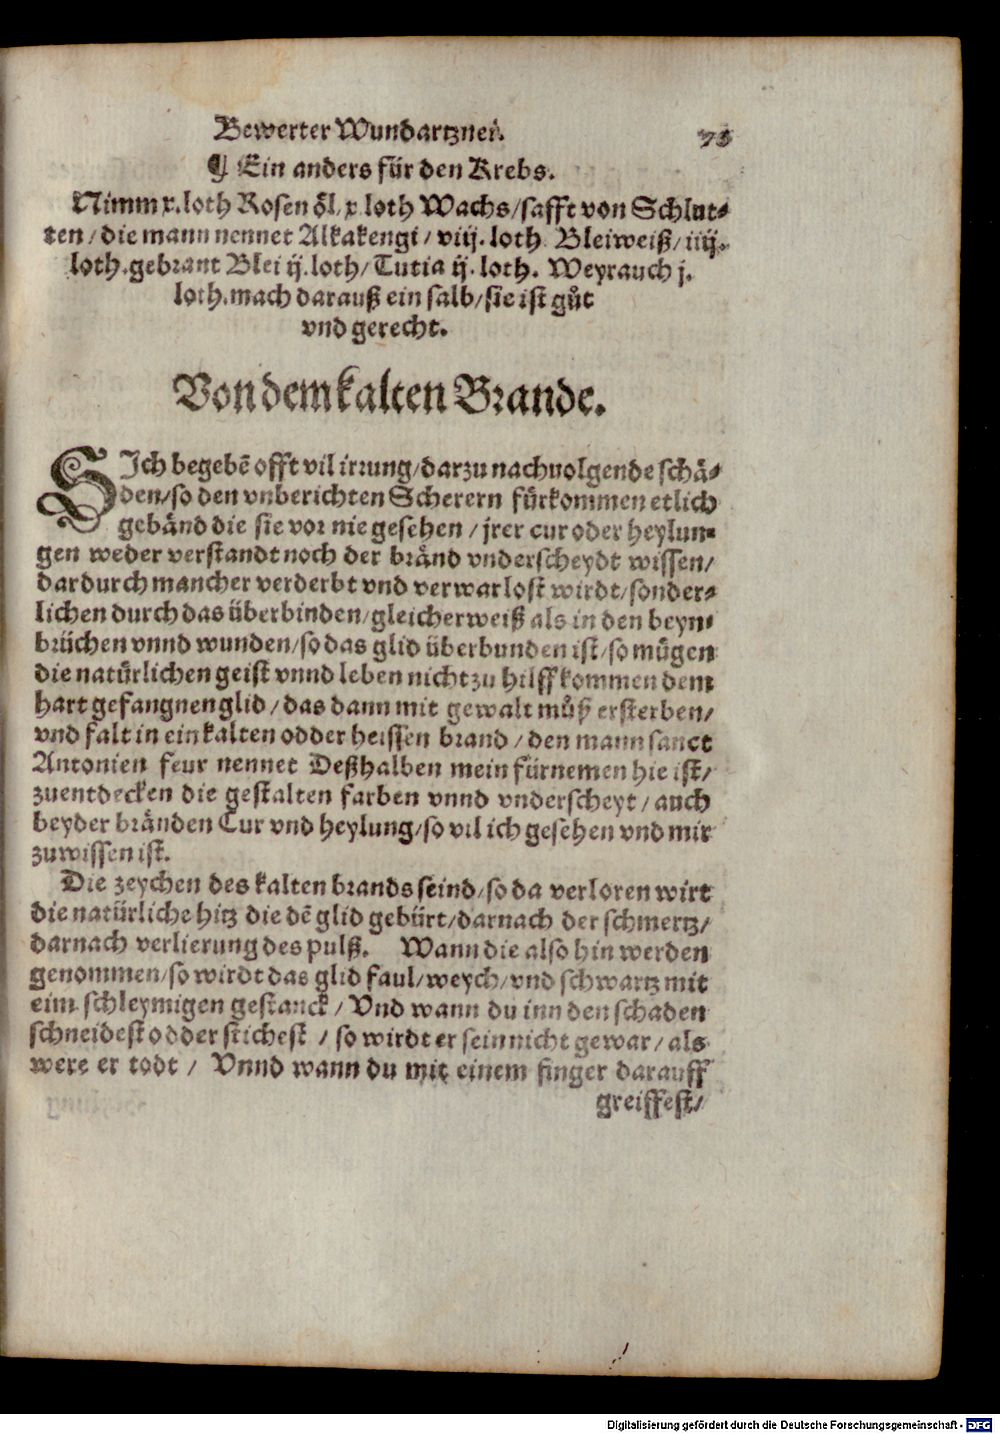 Bewerter Wundartznei. 75
¶ Ein anders für den Krebs.
Nimm x. loth Rosen öl / x loth Wachs / safft von Schlut⸗
ten / die mann nennet Alkakengi / viij. loth Bleiweiß / iiij.
loth. gebrant Blei ij. loth / Tutia ij. loth. Weyrauch j.
loth. mach darauß ein salb / sie ist gůt
vnd gerecht.
Von dem kalten Brande.
SIch begebē offt vil irrung / darzu nachuolgende schä⸗
den / so den vnberichten Scherern fürkommen etlich
gebänd die sie vor nie gesehen / jrer cur oder heylun⸗
gen weder verstandt noch der bränd vnderscheydt wissen /
dardurch mancher verderbt vnd verwarlost wirdt / sonder⸗
lichen durch das überbinden / gleicherweiß als in den beyn⸗
brüchen vnnd wunden / so das glid überbunden ist / so mügen
die natürlichen geist vnnd leben nicht zu hilff kommen dem
hart gefangnen glid / das dann mit gewalt můß ersterben /
vnd falt in ein kalten odder heissen brand / den mann sanct
Antonien feur nennet Deßhalben mein fürnemen hie ist /
zuentdecken die gestalten farben vnnd vnderscheyt / auch
beyder bränden Cur vnd heylung / so vil ich gesehen vnd mir
zuwissen ist.
Die zeychen des kalten brands seind / so da verloren wirt
die natürliche hitz die dē glid gebürt / darnach der schmertz /
darnach verlierung des pulß. Wann die also hin werden
genommen / so wirdt das glid faul / weych / vnd schwartz mit
eim schleymigen gestanck / Vnd wann du inn den schaden
schneidest odder stichest / so wirdt er sein nicht gewar / als
were er todt / Vnnd wann du mit einem finger darauff
greiffest /
Digitalisierung gefördert durch die Deutsche Forschungsgemeinschaft - DFG